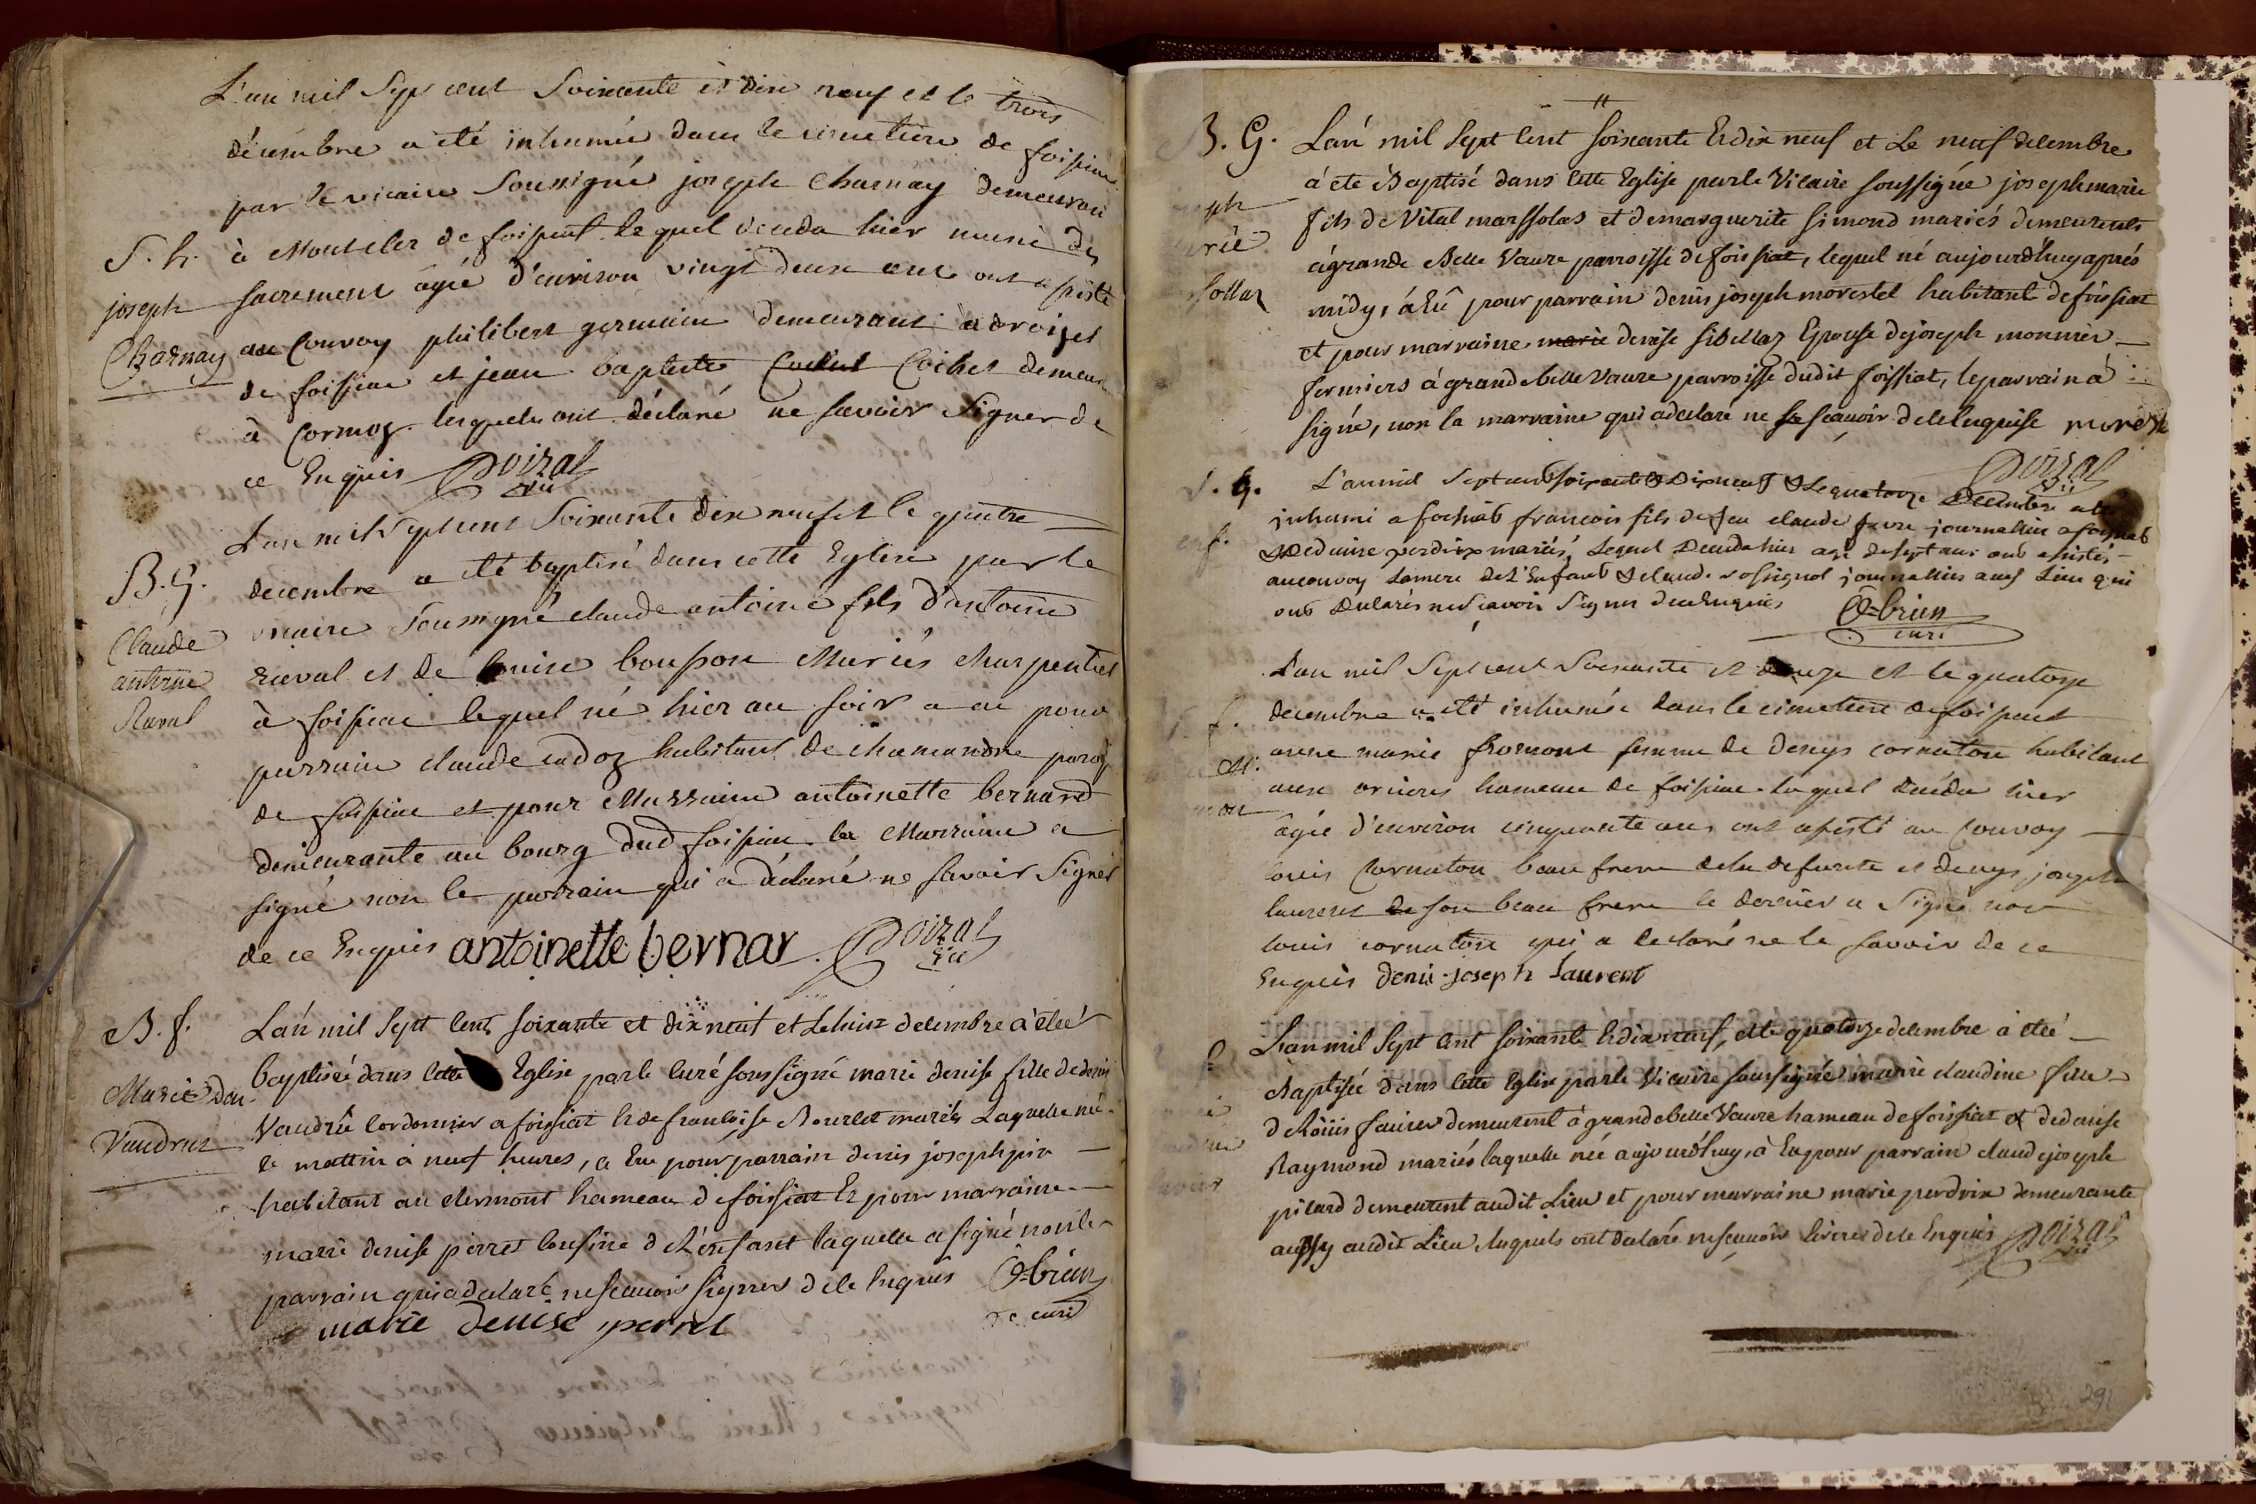 L'an mil sept cent soixante et dix neuf et le trois
décembre a été inhumé dans le cimetiere de foissiat
par le vicaire soussigné joseph Charnay demeurant
S. h. à Montcler de foissiat lequel déceda hier muni des
joseph sacrement âgé d'environ vingt deux ans ont assisté
Charnay au Convoy philibert germain demeurant
de foissiat et jean baptiste Cochet demeur
à Cormoz lesquels ont déclaré ne savoir signer de
ce Enquis Doizat
vic
L'an mil sept cent soixante dix neuf et le quatre
B. G. decembre a été baptisé dans cette Eglise par le
vicaire soussigné claude antoine fils d'antoine
Claude raval et de louise bonpon Mariés charpentier
antoine
Raval à foissiat lequel né hier au soir a eu pour
parrain claude cadoz habitant de chamandre paroiss
de foissiat et pour Marraine antoinette bernard
demeurante au bourg dud foissiat la Marraine a
signé non le parrain qui a déclaré ne savoir signer
de ce Enquis antoinette bernar Doizat
vic
B. f. L'an mil sept cent soixante et dix neuf et le huit decembre à etée
baptisée dans cette Eglise par le curé soussigné marie denise fille de denis
Marie den
Vaudru cordonnier a foissiat et de francoise Bourlet mariés Laquelle née
Vaudruz
le mattin à neuf heures, a eu pour parrain denis joseph
habitant au clermont hameau de foissiat et pour marraine
marie denise perret cousine de L'enfant laquelle a signé non le
parrain qui a declaré ne scauoir signer de ce enquis O-brien
marie denise perret curé
B. G. L'an mil sept cent soixante Et dix neuf et Le neuf decembre
à ete Baptisé dans cette Eglise par le Vicaire soussigné joseph marie
ph
fils de Vital marssolas et de marguerite simond mariés demeurents
rie
à grande Belle Vavre parroisse de foissiat, lequel né aujourd'huy aprés
sollaz
midy, à Eû pour parrain denis joseph morestel habitant de foissiat
et pour marraine marie denise sibellaz Epouse de joseph monnier
fermiers à grande belle Vavre parroisse dudit foissiat, le parrain a
signé, non la marraine qui a declaré ne sa scauoir de ce enquise morest
Doizat
vic
S. G. L'an mil sept cent soixante & dix neuf & le quatorze Decembre a ete
inhumé a foissiat francois fils de feu claude favre journallier a foissiat
enf. & Denise perdrix mariés, Lequel Deceda hier agé de sept ans ont assistés
au convoy La mere de L'Enfant & claude rossignol journallier aud Lieu qui
ont Declarés ne scavoir signer de ce Enquis O-brien
curé
L'an mil sept cent soixante et douze et le quatorze
f. decembre a été inhumée dans le cimetiere de foissiat
anne marie fromont femme de denys cornaton habitant
M.
aux oriers hameau de foissiat laquel décéda hier
mon
âgée d'environ cinquante ans ont assisté au Convoy
louis Cornaton beau frere de la defunte et denys joseph
laurent de son beau frere le dernier a signé non
louis cornaton qui a declaré ne le savoir de ce
Enquis denis joseph Laurent
L'an mil sept cent soixante Et dix neuf, et le quatorze decembre à etée
Baptisée dans cette Eglise par le Vicaire soussigné marie claudine fille
de Loüis faiures demeurent à grande belle Vavre hameau de foissiat et de denise
Raymond mariés laquelle née aujourd'huy, à Eu pour parrain claude joseph
pitard demeurent audit Lieu et pour marraine marie perdrix demeurante
aussy audit Lieu lesquels ont declaré ne scauoir de ce Enquis Doizat
vic
291